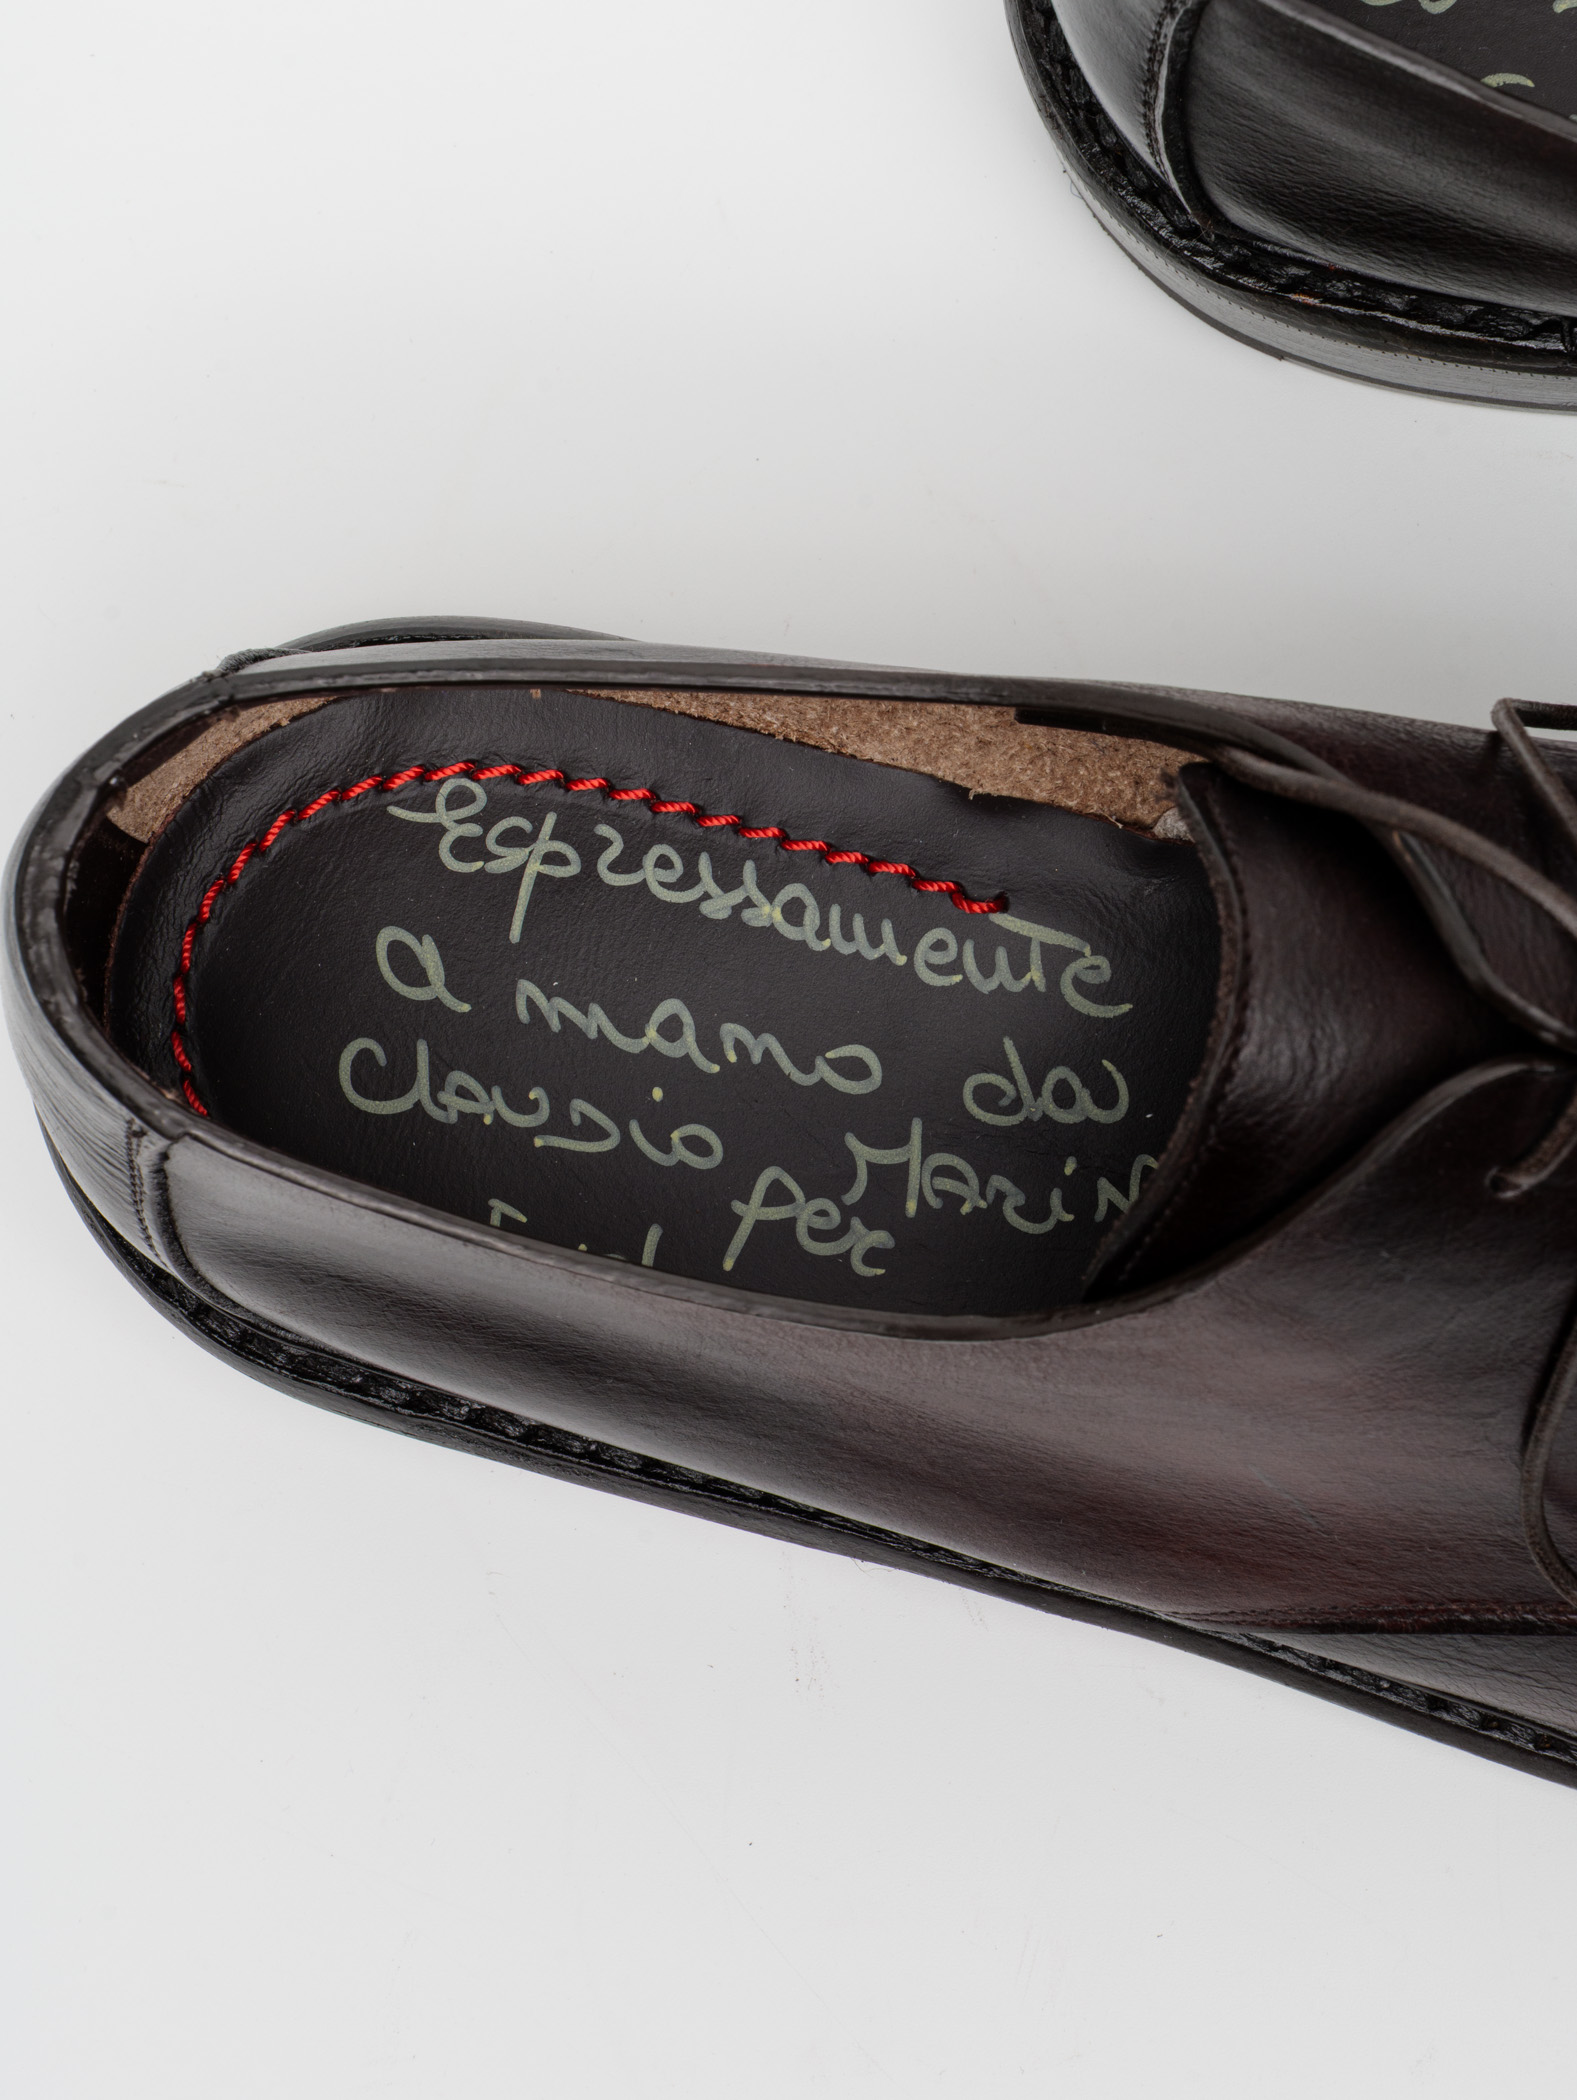 Espressamente
a mano da
Claudio MARIN
per